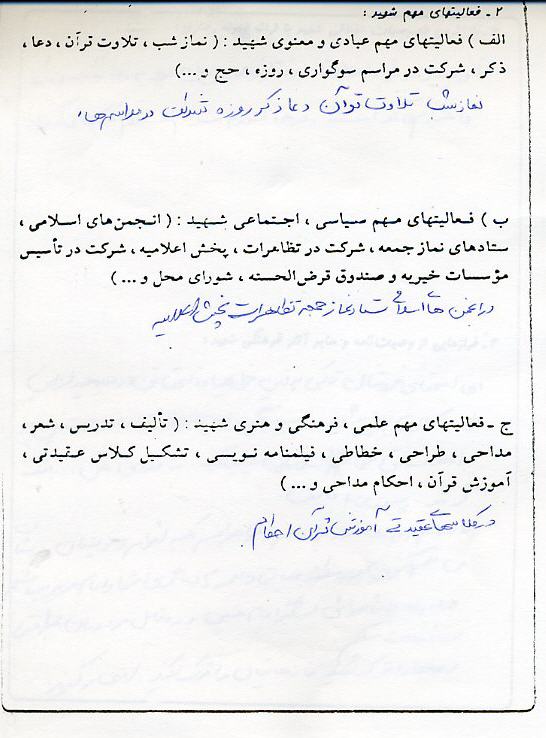 ۲ - فعالیتهای مهم شهید :
الف ) فعالیتهای مهم عبادی و معنوی شهید : ( نماز شب ، تلاوت قرآن ، دعا ،
ذکر ، شرکت در مراسم سوگواری ، روزه ، حج و ...)
نماز شب تلاوت قرآن دعا ذکر روزه شرکت در مراسم ها
ب ) فعالیتهای مهم سیاسی ، اجتماعی شهید : ( انجمن های اسلامی ،
ستادهای نماز جمعه ، شرکت در تظاهرات ، پخش اعلامیه ، شرکت در تأسیس
مؤسسات خیریه و صندوق قرض الحسنه ، شورای محل و ... )
در انجمن های اسلامی ستاد نماز جمعه تظاهرات پخش اعلامیه
ج - فعالیتهای مهم علمی ، فرهنگی و هنری شهید : ( تألیف ، تدریس ، شعر ،
مداحی ، طراحی ، خطاطی ، فیلمنامه نویسی ، تشکیل کلاس عقیدتی ،
آموزش قرآن ، احکام مداحی و ... )
در کلاسهای عقیدتی آموزش قرآن احکام